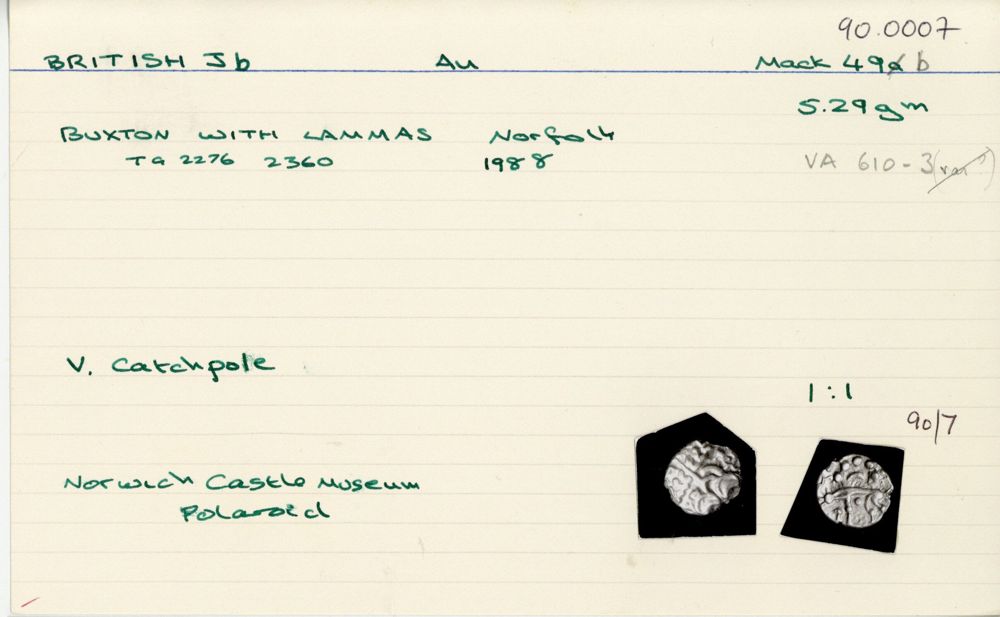 90.0007
BRITISH Jb Au Mack 49a b
5.29gm
BUXTON WITH LAMMAS Norfolk
TG 2276 2360 1988 VA 610-3 (var)
V. Catchpole
1:1
90/7
Norwich Castle Museum
Polaroid